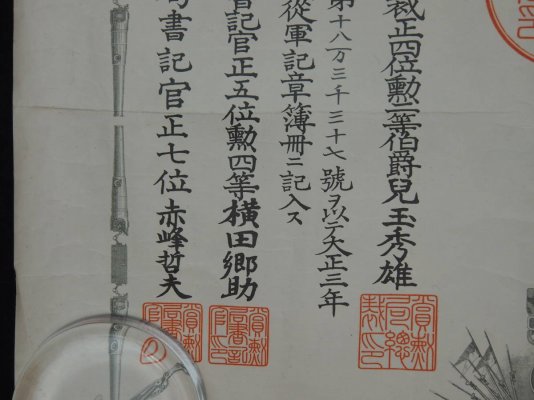 裁正四位勲二等伯爵兒玉秀雄
第十八万三千三十七號ヲ以テ大正三年
從軍記章簿冊ニ記入ス
書記官正五位勲四等横田郷助
書記官正七位赤峰哲夫